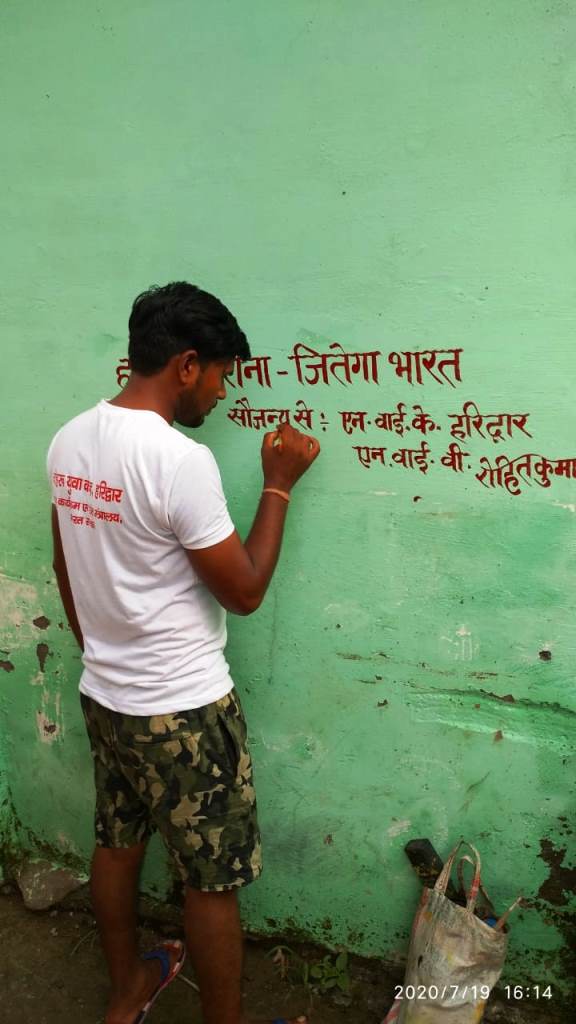 रोना - जितेगा भारत
सौजन्य से : एन.वाई.के. हरिद्वार
एन.वाई.वी. रोहितकुमा
युवा के, हरिद्वार
मंत्रालय,
2020/7/19 16:14